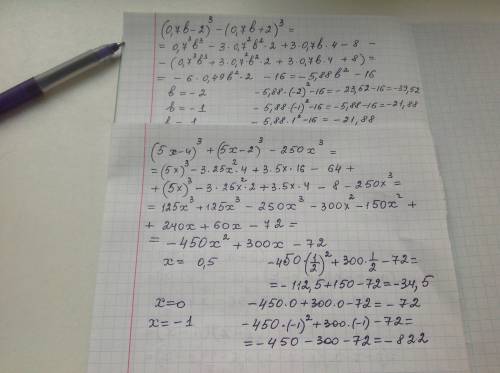 (0,7b-2)³ - (0,7b+2)³ =
= 0,7³b³ - 3·0,7²b²·2 + 3·0,7b·4 - 8 -
- (0,7³b³ + 3·0,7²b²·2 + 3·0,7b·4 + 8) =
= - 6·0,49b²·2 - 16 = -5,88b² - 16
b = -2 -5,88·(-2)²-16 = -23,52-16 = -39,52
b = -1 -5,88·(-1)²-16 = -5,88-16 = -21,88
b = 1 -5,88·1²-16 = -21,88
(5x-4)³ + (5x-2)³ - 250x³ =
= (5x)³ - 3·25x²·4 + 3·5x·16 - 64 +
+ (5x)³ - 3·25x²·2 + 3·5x·4 - 8 - 250x³ =
= 125x³ + 125x³ - 250x³ - 300x² - 150x² +
+ 240x + 60x - 72 =
= -450x² + 300x - 72
x = 0,5 -450(1/2)² + 300·1/2 - 72 =
= -112,5 + 150 - 72 = -34,5
x = 0 -450·0 + 300·0 - 72 = -72
x = -1 -450·(-1)² + 300·(-1) - 72 =
= -450 - 300 - 72 = -822